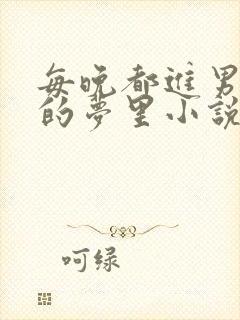 每晚都进男
的梦里小说
呵绿